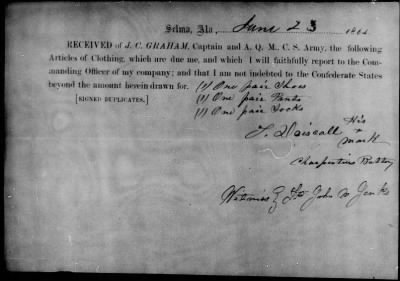 Selma, Ala, June 23 1864
RECEIVED of J. C. GRAHAM, Captain and A. Q. M., C. S. Army, the following
Articles of Clothing, which are due me, and which I will faithfully report to the Com-
manding Officer of my company; and that I am not indebted to the Confederate States
beyond the amount herein drawn for. (1) One pair Shoes
[SIGNED DUPLICATES.] (1) One pair Pants
(1) One pair Socks
T. Driscall His
+
mark
Charpentiers Battery
Witness John W Jenks